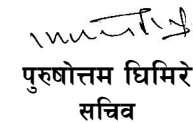 पुरुषोत्तम घिमिरे
सचिव